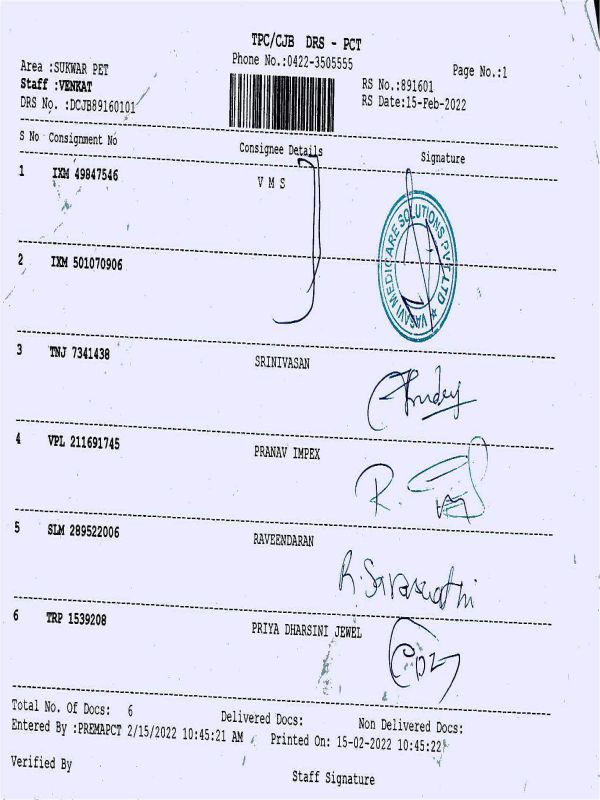 TPC/CJB DRS - PCT
Phone No.:0422-3505555
Page No.:1
Area :SUKWAR PET
Staff :VENKAT
DRS No. :DCJB89160101
RS No.:891601
RS Date:15-Feb-2022
S No Consignment No Consignee Details Signature
1 IXM 49847546 V M S
VASAVI MEDICARE SOLUTIONS PVT LTD
2 IXM 501070906
3 TNJ 7341438 SRINIVASAN
4 VPL 211691745 PRANAV IMPEX
R.
5 SLM 289522006 RAVEENDARAN
R. Saraswathi
6 TRP 1539208 PRIYA DHARSINI JEWEL
Total No. Of Docs: 6 Delivered Docs: Non Delivered Docs:
Entered By :PREMAPCT 2/15/2022 10:45:21 AM Printed On: 15-02-2022 10:45:22
Verified By Staff Signature